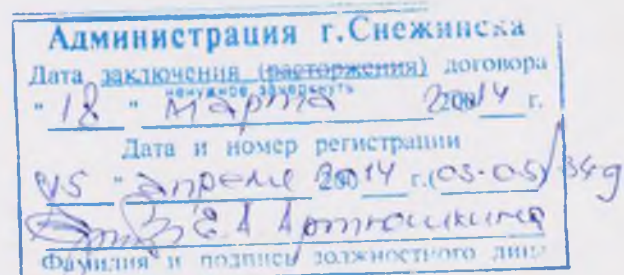 Администрация г.Снежинска
Дата заключения (расторжения) договора
ненужное зачеркнуть
" 18 " марта 2014 г.
Дата и номер регистрации
" апреля 2014 г.(03-05)/34д
Е.А Артюшкина
Фамилия и подпись должностного лица